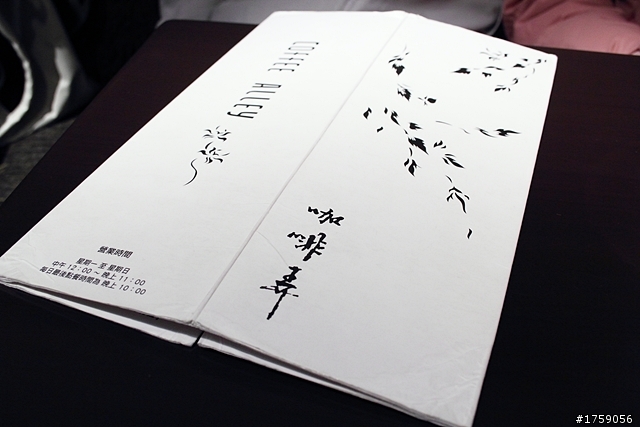 COFFEE ALLEY
咖啡弄
營業時間
星期一 至 星期日
中午 12:00 ~ 晚上 11:00
每日最後點餐時間為 晚上 10:00
#1759056